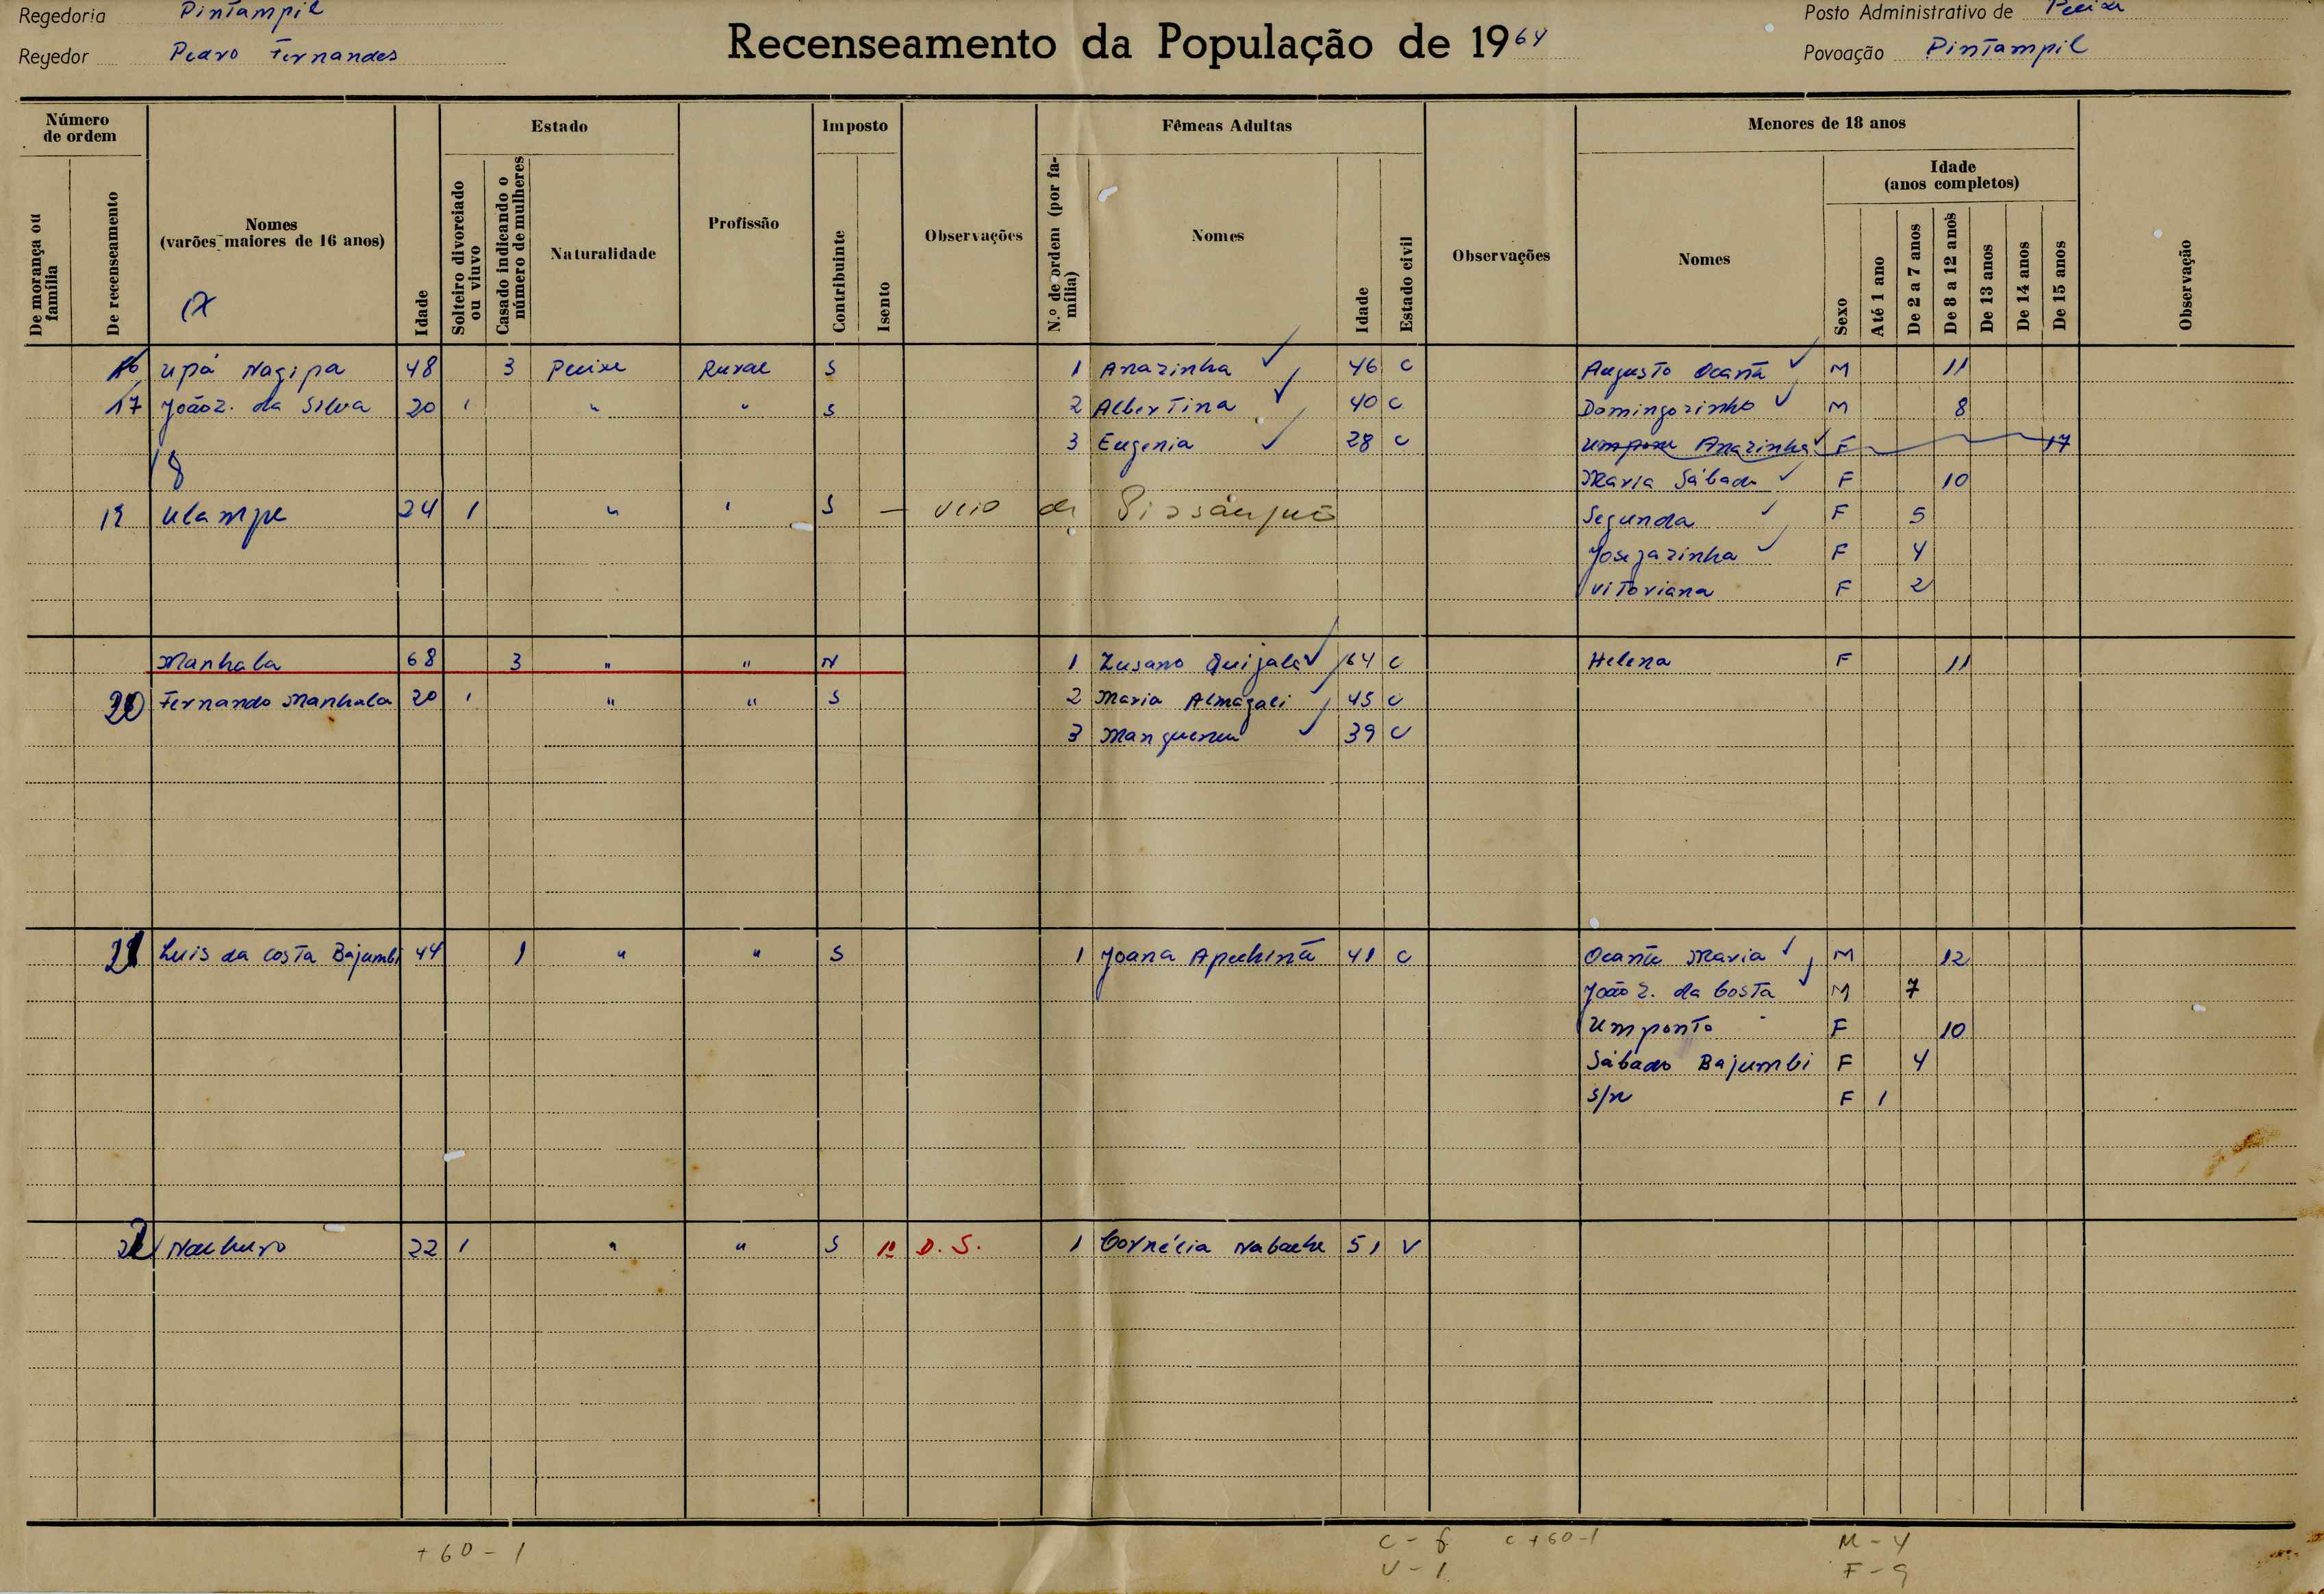 Regedoria Pintampil
Posto Administrativo de Pecixe
Recenseamento da População de 1964
Regedor Pedro Fernandes
Povoação Pintampil
Número de ordem
Estado
Imposto
Fêmeas Adultas
Menores de 18 anos
De morança ou família
De recenseamento
Nomes (varões maiores de 16 anos)
Idade
Solteiro divorciado ou viuvo
Casado indicando o número de mulheres
Naturalidade
Profissão
Contribuinte
Isento
Observações
N.º de ordem (por família)
Nomes
Idade
Estado civil
Observações
Nomes
Sexo
Idade (anos completos)
Até 1 ano
De 2 a 7 anos
De 8 a 12 anos
De 13 anos
De 14 anos
De 15 anos
Observação
16 Upá Nagipa 48 3 Pecixe Rural S 1 Anazinha 46 C Augusto Ocanta M 11
17 João Z. da Silva 20 1 " " S 2 Albertina 40 C Domingozinho M 8
3 Eugenia 28 C Anazinha F 17
18
Maria Sábado F 10
19 Ulampe 24 1 " " S — veio de Segunda F 5
Josejazinha F 4
Vitoriana F 2
Manhala 68 3 " " N 1 Zusano Quijala 64 C Helena F 11
20 Fernando Manhala 20 1 " " S 2 Maria Almagali 45 C
3 39 C
21 Luis da Costa Bajumbi 44 1 " " S 1 Joana Apuchinta 41 C Ocante Maria M 12
João Z. da Costa M 7
Umponto F 10
Sábado Bajumbi F 4
S/n F 1
22 22 1 " " S 1º D. S. 1 Cornélia 51 V
+60 - 1
C - 8
C +60-1
M - 4
V - 1
F - 9